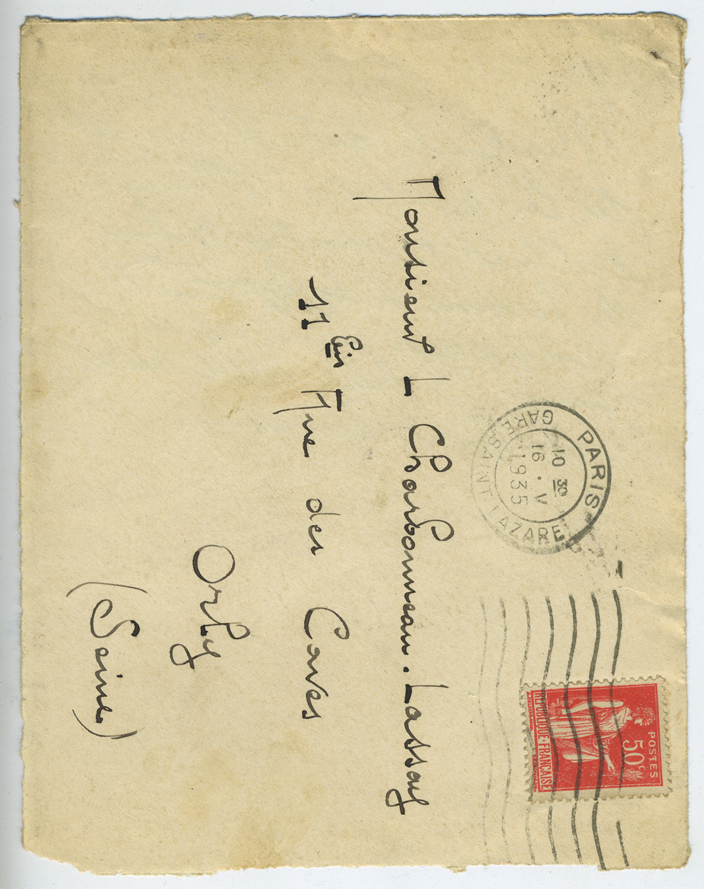 PARIS
GARE SAINT LAZARE
10 30
16 . V
1935
POSTES
50c
RÉPUBLIQUE FRANÇAISE
Monsieur L Charbonneau. Lassay
11 bis Rue des Caves
Orly
(Seine)